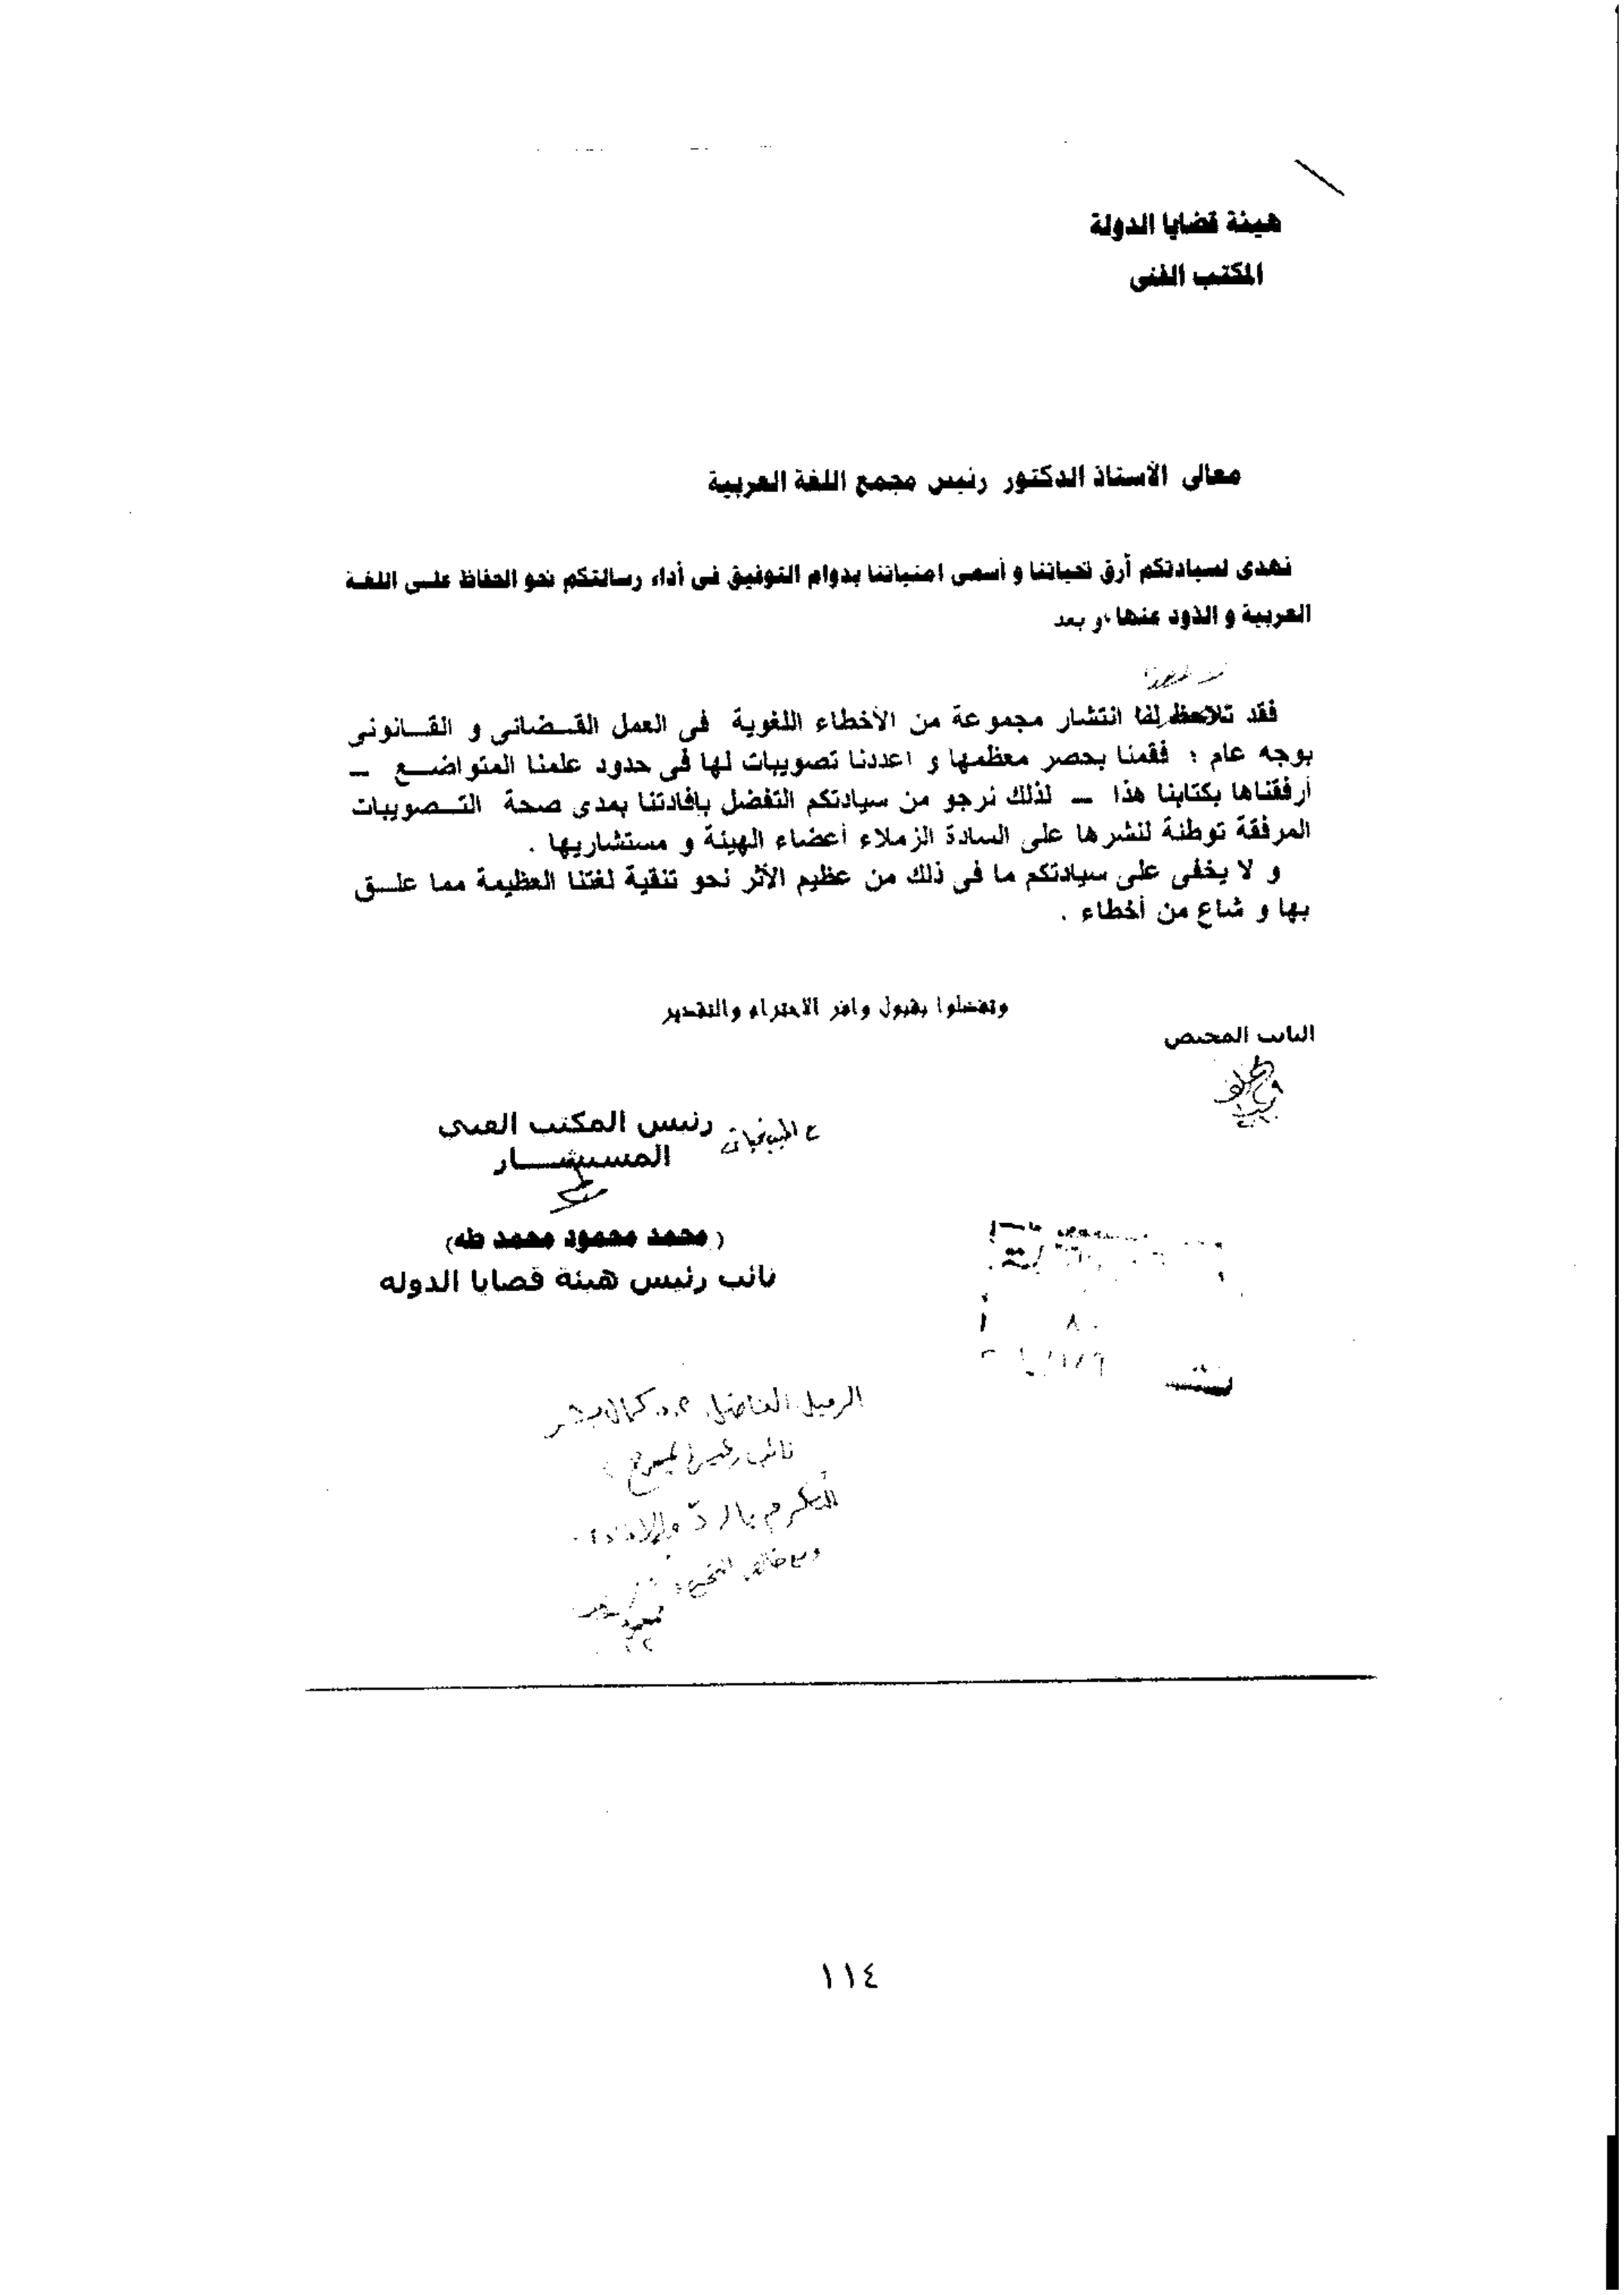 هيئة قضايا الدولة
المكتب الفنى
معالى الأستاذ الدكتور رئيس مجمع اللغة العربية
نهدى لسيادتكم أرق تحياتنا و أسمى امنياتنا بدوام التوفيق فى أداء رسالتكم نحو الحفاظ على اللغة
العربية و الذود عنها ،و بعد
فقد تلاحظ لنا انتشار مجموعة من الأخطاء اللغوية فى العمل القضائى و القانونى
بوجه عام ؛ فقمنا بحصر معظمها و اعددنا تصويبات لها فى حدود علمنا المتواضع –
أرفقناها بكتابنا هذا – لذلك نرجو من سيادتكم التفضل بإفادتنا بمدى صحة التصويبات
المرفقة توطئة لنشرها على السادة الزملاء أعضاء الهيئة و مستشاريها .
و لا يخفى على سيادتكم ما فى ذلك من عظيم الأثر نحو تنقية لغتنا العظيمة مما علق
بها و شاع من أخطاء .
وتفضلوا بقبول وافر الاحترام والتقدير
النائب المختص
رئيس المكتب الفنى
المستشــــار
(محمد محمود محمد طه)
نائب رئيس هيئة قضايا الدوله
الزميل الفاضل أ.د. كمال بشر
نائب رئيس المجمع
التكرم بالرد والإفادة
١١٤